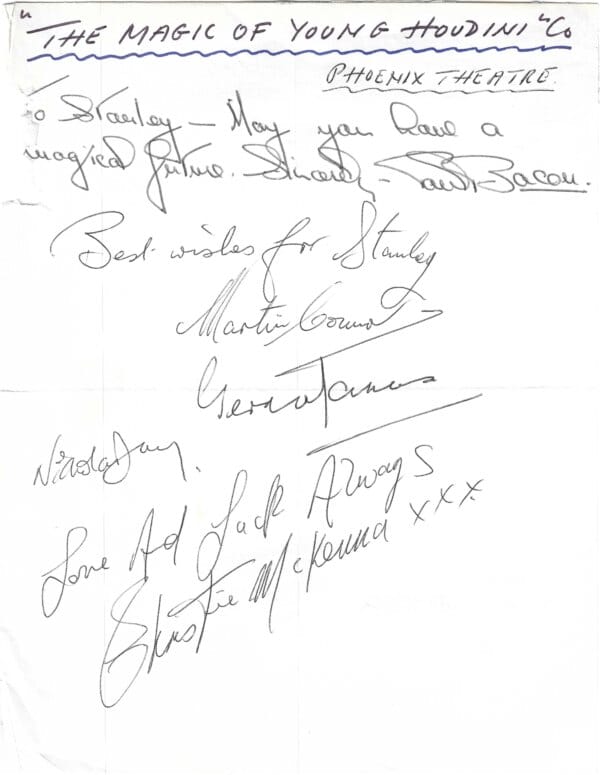 "THE MAGIC OF YOUNG HOUDINI" Co
PHOENIX THEATRE.
To Stanley – May you have a
magical future. Sincerely – Bacon.
Best wishes for Stanley
Martin
Nicola Day.
Love Ad Luck Always
Christie McKenna xxx